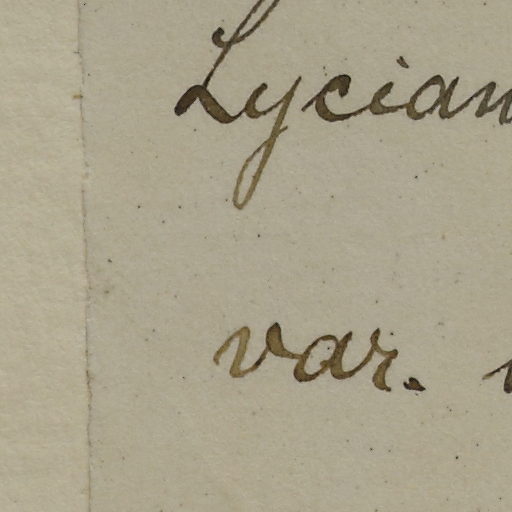 Lycian
var.